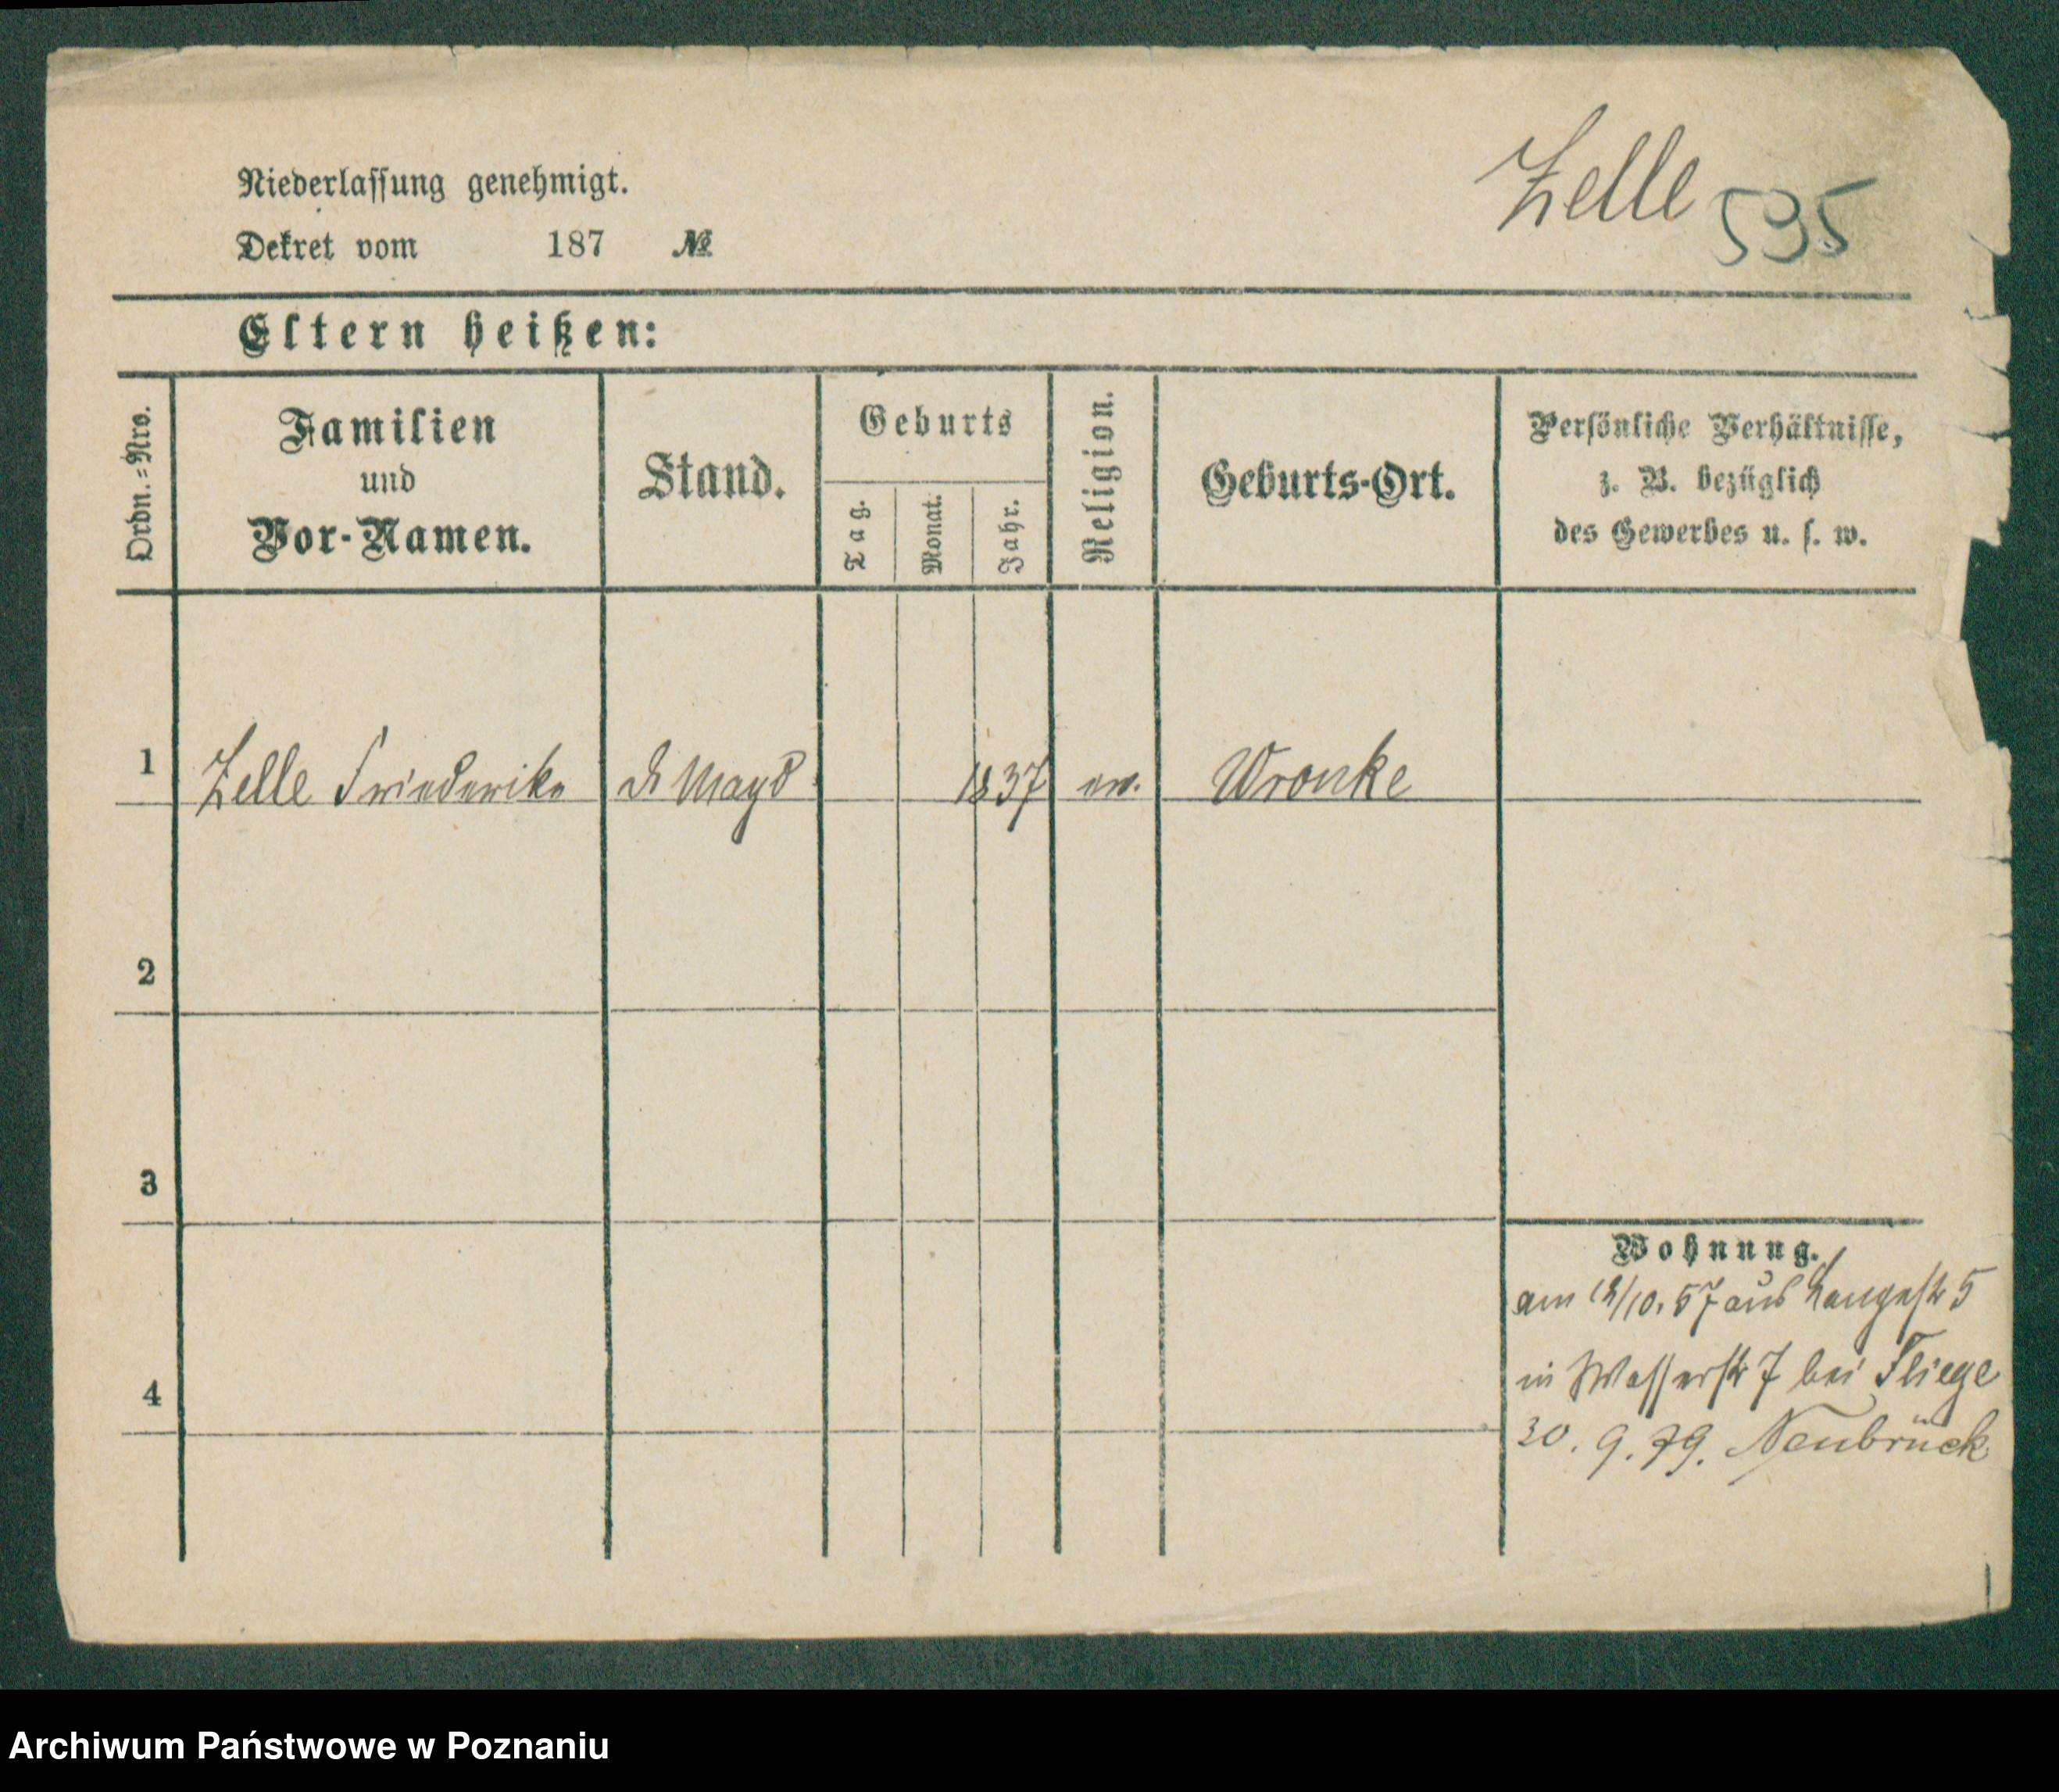 Niederlassung genehmigt.
Zelle 595
Dekret vom 187 №
Eltern heißen:
Ordn.=Nro.
Familien
und
Vor-Namen.
Stand.
Geburts
Tag.
Monat.
Jahr.
Religion.
Geburts-Ort.
Persönliche Verhältnisse,
z. B. bezüglich
des Gewerbes u. s. w.
1 Zelle Friederike Magd 1837 ev. Wronke
2
3
Wohnung.
am /10. 67 aus Langestr 5
in Wasserstr 7 bei Fliege
4
30. 9. 79. Neubrück
Archiwum Państwowe w Poznaniu